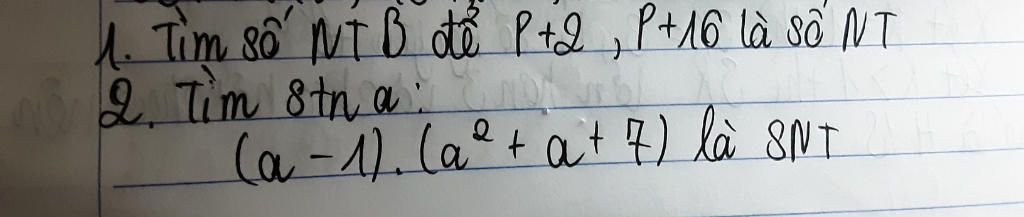 1. Tìm số NT P để P+2, P+16 là số NT
2. Tìm stn a:
(a - 1). (a² + a + 7) là SNT